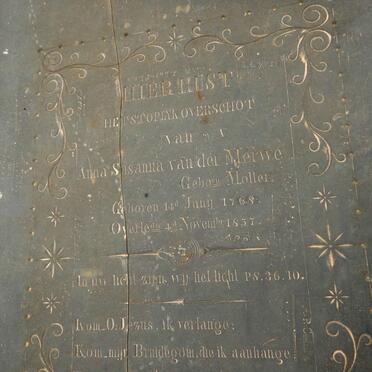 HIER RUST
HET STOFLYK OVERSCHOT
van
Anna Susanna van der Merwe
Geboren Moller.
Geboren 14e Juny 1768.
Overleden 4d Novembr 1837.
In uw licht zien wij het licht PS.36.10.
Kom, O, Jezus, ik verlange;
Kom, mijn Bruidegom, die ik aanhange